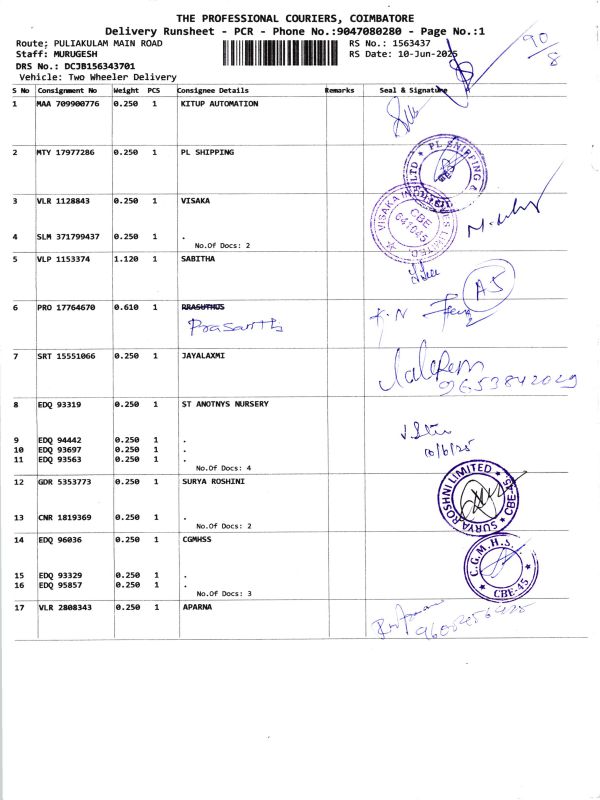 THE PROFESSIONAL COURIERS, COIMBATORE
Delivery Runsheet - PCR - Phone No.:9047080280 - Page No.:1
Route; PULIAKULAM MAIN ROAD
RS No.: 1563437
90/8
Staff: MURUGESH
RS Date: 10-Jun-2025
DRS No.: DCJB156343701
Vehicle: Two Wheeler Delivery
S No Consignment No Weight PCS Consignee Details Remarks Seal & Signature
1 MAA 709900776 0.250 1 KITUP AUTOMATION
2 MTY 17977286 0.250 1 PL SHIPPING
PL SHIPPING &
3 VLR 1128843 0.250 1 VISAKA
VISAKA INDUSTRIES LIMITED
CBE
641045
4 SLM 371799437 0.250 1 .
No.Of Docs: 2
5 VLP 1153374 1.120 1 SABITHA
A5
6 PRO 17764670 0.610 1 RRASUTHUS
Prasanth
K.N
7 SRT 15551066 0.250 1 JAYALAXMI
9653842029
8 EDQ 93319 0.250 1 ST ANOTNYS NURSERY
10/6/25
9 EDQ 94442 0.250 1 .
10 EDQ 93697 0.250 1 .
11 EDQ 93563 0.250 1 .
No.Of Docs: 4
12 GDR 5353773 0.250 1 SURYA ROSHINI
SURYA ROSHNI LIMITED
CBE-45
13 CNR 1819369 0.250 1 .
No.Of Docs: 2
14 EDQ 96036 0.250 1 CGMHSS
C.G.M.H.S.
CBE-45
15 EDQ 93329 0.250 1 .
16 EDQ 95857 0.250 1 .
No.Of Docs: 3
17 VLR 2808343 0.250 1 APARNA